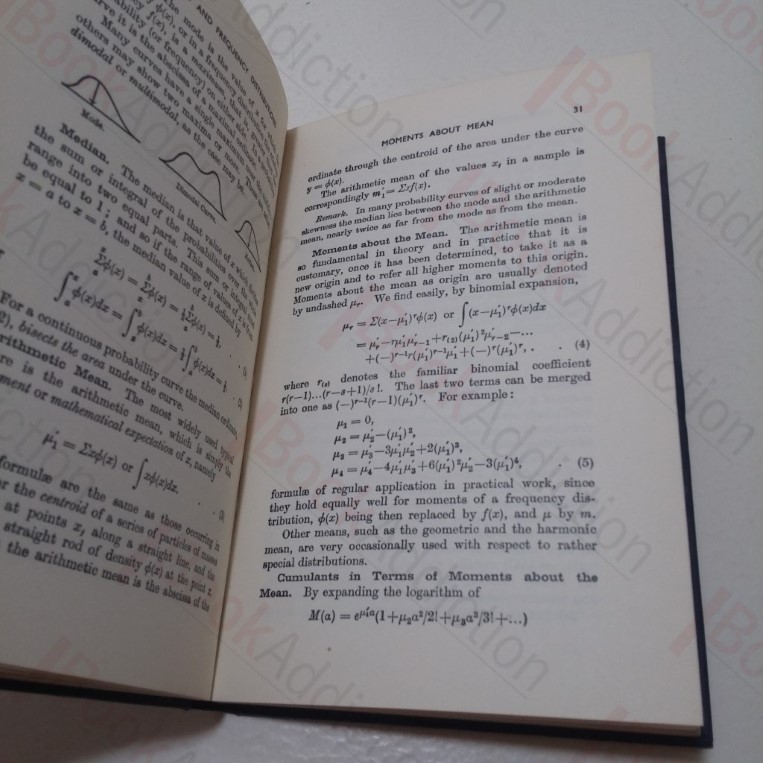 AND FREQUENCY DISTRIBUTION
The mode is the value of x for
Many curves have a single maximum;
others may show two maxima or more. These are
dimodal or multimodal, as the case may be.
Mode.
Dimodal Curve.
Median. The median is that value of x which divides
the sum or integral of the probabilities over the
range into two equal parts. This sum or integral
be equal to 1; and so if the range of values of x is from
x = a to x = b, the median value of x is defined by
For a continuous probability curve the median ordinate
bisects the area under the curve.
Arithmetic Mean. The most widely used typical
is the arithmetic mean, which is simply the
moment or mathematical expectation of x, namely
μ′₁ = Σxφ(x) or ∫xφ(x)dx.
formulæ are the same as those occurring in
the centroid of a series of particles of masses
at points xⱼ along a straight line, and the
straight rod of density φ(x) at the point x.
the arithmetic mean is the abscissa of the
MOMENTS ABOUT MEAN 31
ordinate through the centroid of the area under the curve
y = φ(x).
The arithmetic mean of the values xⱼ in a sample is
correspondingly m′₁ = Σxf(x).
Remark. In many probability curves of slight or moderate
skewness the median lies between the mode and the arithmetic
mean, nearly twice as far from the mode as from the mean.
Moments about the Mean. The arithmetic mean is
so fundamental in theory and in practice that it is
customary, once it has been determined, to take it as a
new origin and to refer all higher moments to this origin.
Moments about the mean as origin are usually denoted
by undashed μᵣ. We find easily, by binomial expansion,
μᵣ = Σ(x−μ′₁)ʳφ(x) or ∫(x−μ′₁)ʳφ(x)dx
= μ′ᵣ−rμ′₁μ′ᵣ₋₁+r₍₂₎(μ′₁)²μ′ᵣ₋₂−...
+(−)ʳ⁻¹r(μ′₁)ʳ⁻¹μ′₁+(−)ʳ(μ′₁)ʳ, . . (4)
where r₍ₛ₎ denotes the familiar binomial coefficient
r(r−1)...(r−s+1)/s!. The last two terms can be merged
into one as (−)ʳ⁻¹(r−1)(μ′₁)ʳ. For example:
μ₁ = 0,
μ₂ = μ′₂−(μ′₁)²,
μ₃ = μ′₃−3μ′₁μ′₂+2(μ′₁)³,
μ₄ = μ′₄−4μ′₁μ′₃+6(μ′₁)²μ′₂−3(μ′₁)⁴, . (5)
formulæ of regular application in practical work, since
they hold equally well for moments of a frequency dis-
tribution, φ(x) being then replaced by f(x), and μ by m.
Other means, such as the geometric and the harmonic
mean, are very occasionally used with respect to rather
special distributions.
Cumulants in Terms of Moments about the
Mean. By expanding the logarithm of
M(a) = e^μ′₁a(1+μ₂a²/2!+μ₃a³/3!+...)